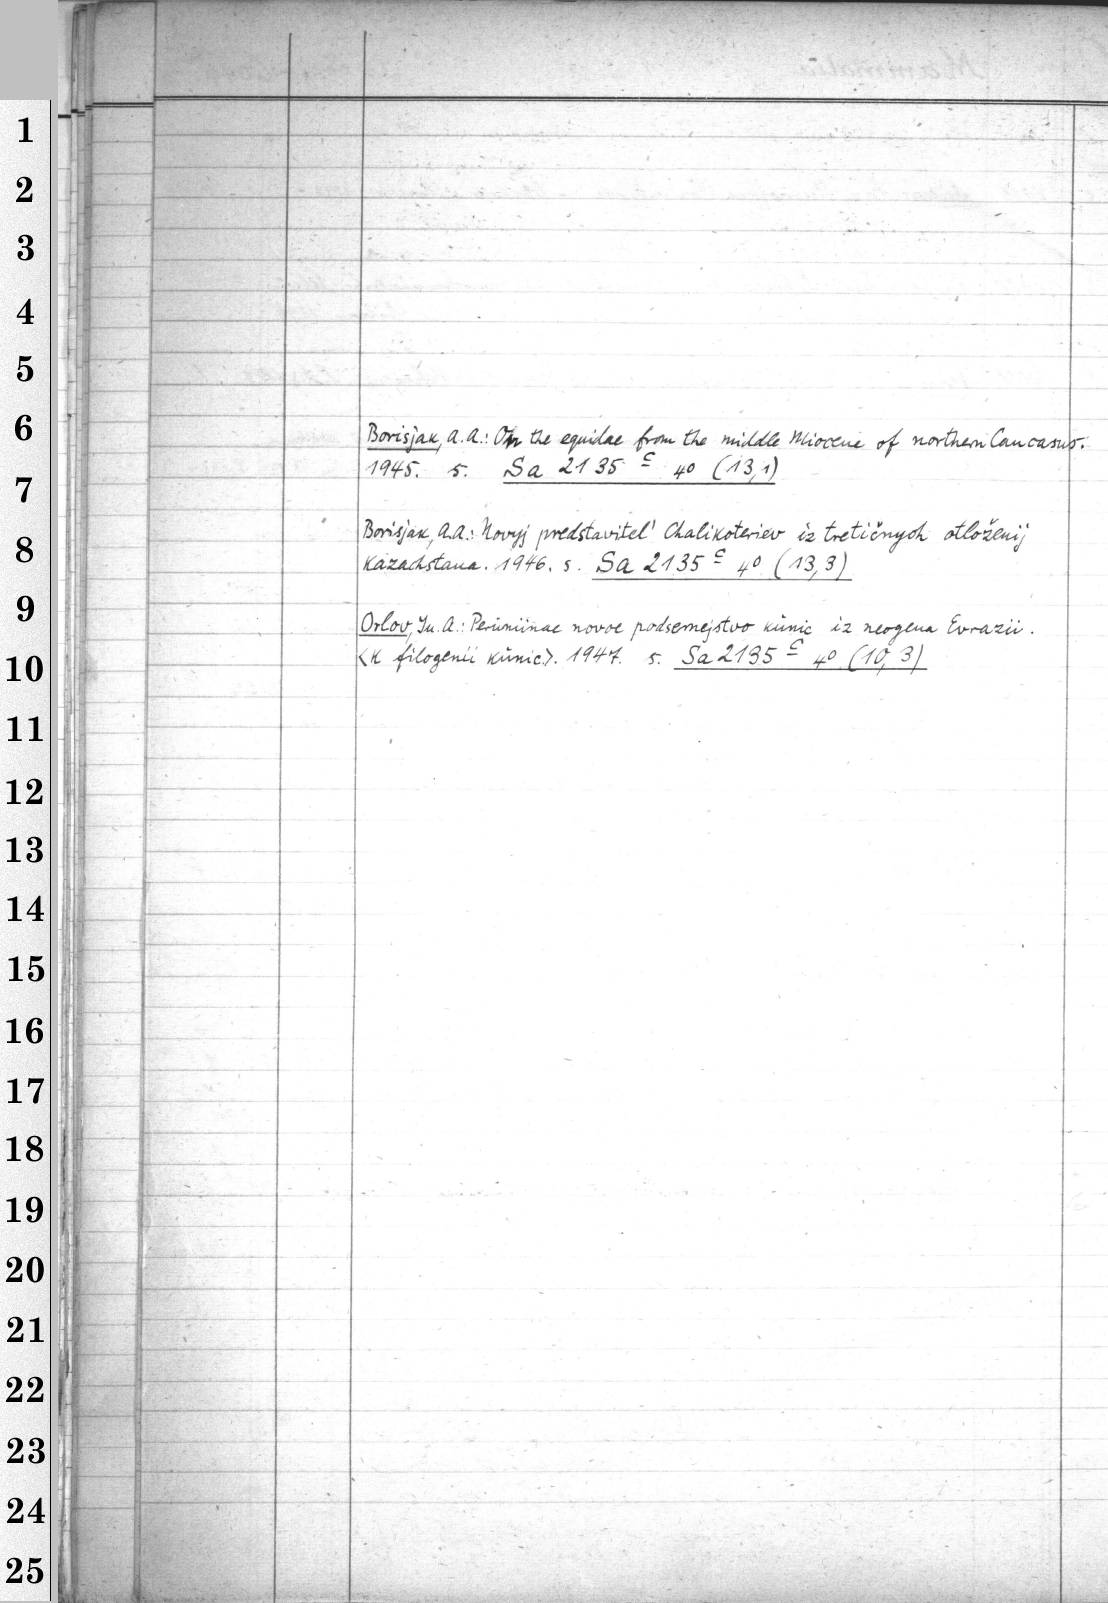 1
2
3
4
5
6
7
8
9
10
11
12
13
14
15
16
17
18
19
20
21
22
23
24
25
Borisjak, A.A.: On the equidae from the middle Miocene of northern Caucasus.
1945. s. Sa 2135 c 4° (13,1)
Borisjak, A.A.: Novyj predstavitel' Chalikoteriev iz tretičnych otloženij
Kazachstana. 1946. s. Sa 2135 c 4° (13,3)
Orlov, Ju. A.: Peruniinae novoe podsemejstvo kunic iz neogena Evrazii.
<K filogenii kunic>. 1947. s. Sa 2135 c 4° (10,3)